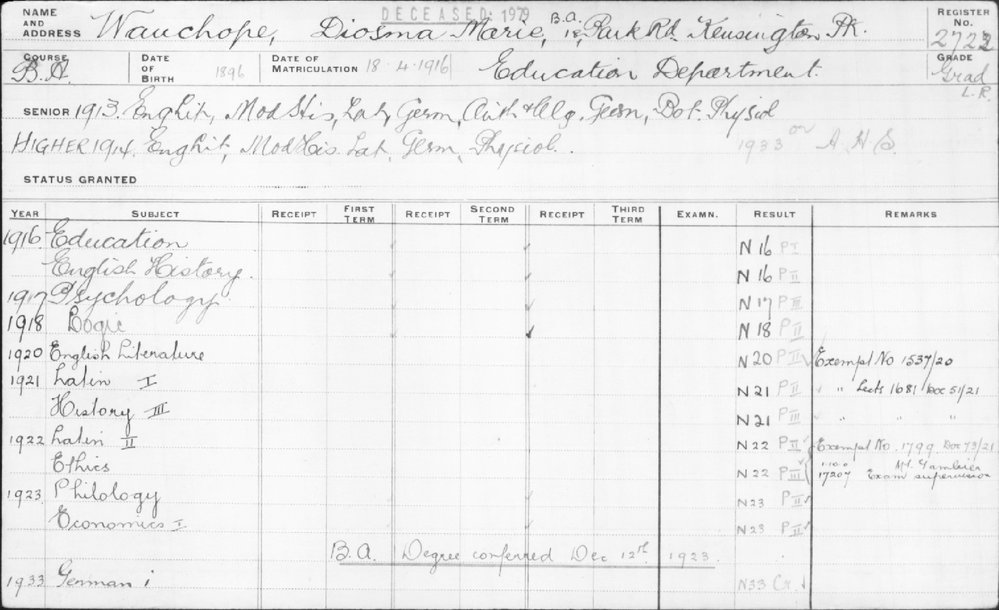 DECEASED 1979
NAME AND ADDRESS Wauchope, Diosma Marie, B.A. 12, Park Rd. Kensington Pk. REGISTER No. 2722
COURSE B.A. DATE OF BIRTH 1896 DATE OF MATRICULATION 18.4.1916 Education Department. GRADE Grad L.R.
SENIOR 1913. Eng Lit, Mod His, Lat, Germ, Arith & Alg. Geom, Bot. Physiol
HIGHER 1914. Eng Lit, Mod His. Lat. Germ, Physiol. 1933
STATUS GRANTED
YEAR SUBJECT RECEIPT FIRST TERM RECEIPT SECOND TERM RECEIPT THIRD TERM EXAMN. RESULT REMARKS
1916 Education N 16 P I
English History. N 16 P II
1917 Psychology N 17 P III
1918 Logic N 18 P II
1920 English Literature N 20 P II Exempt No 1537/20
1921 Latin I N 21 P II " " Lects 1681 Doc 51/21
History III N 21 P III " " "
1922 Latin II N 22 P II Exempt No. 1799. Doc 73/21
Ethics N 22 P III 17207 Mt. Gambier Exam supervision
1923 Philology N 23 P II
Economics I N 23 P II
B.A. Degree conferred Dec 12th 1923.
1933 German i N33 Cr.